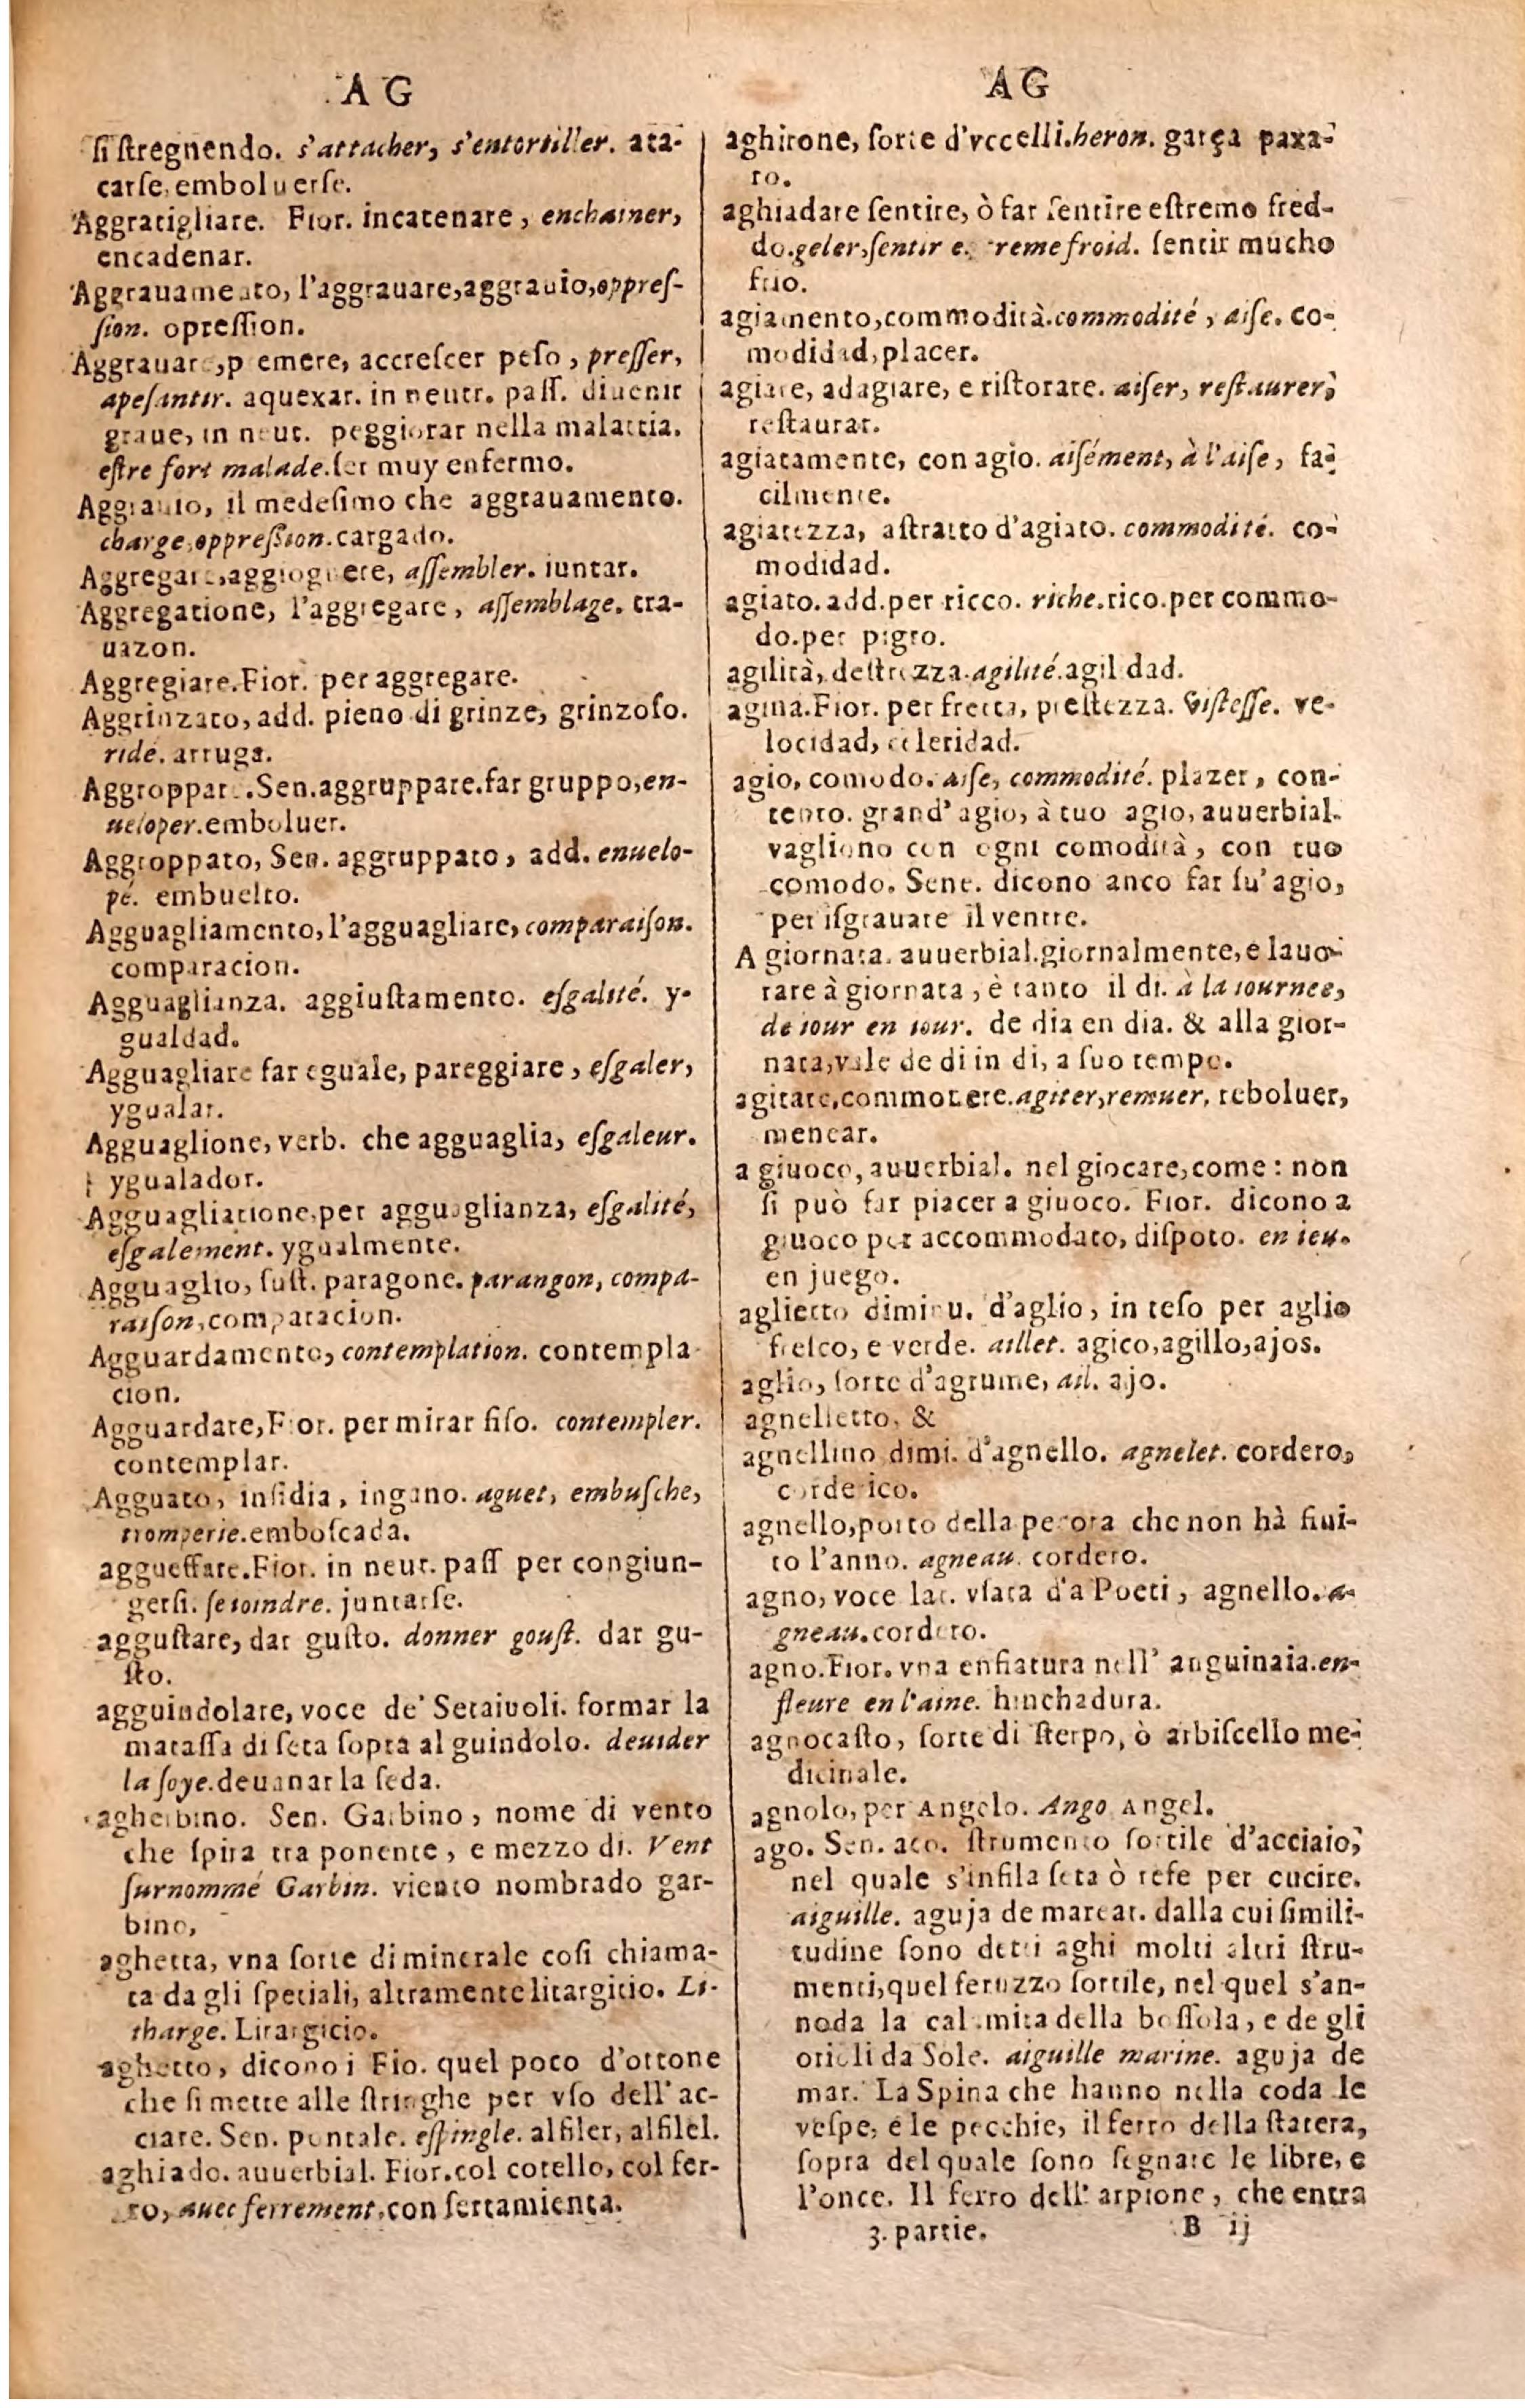 A G
si stregnendo. s'attacher, s'entortiller. ata-
carse, emboluerse.
Aggratigliare. Fior. incatenare, enchainer,
encadenar.
Aggrauamento, l'aggrauare, aggrauio, oppres-
sion. opression.
Aggrauare, premere, accrescer peso, presser,
apesantir. aquexar. in neutr. pass. diuenir
graue, in neut. peggiorar nella malattia.
estre fort malade. ser muy enfermo.
Aggrauio, il medesimo che aggrauamento.
charge, oppression. cargado.
Aggregare, aggiognere, assembler. iuntar.
Aggregatione, l'aggregare, assemblage. tra-
uazon.
Aggregiare. Fior. per aggregare.
Aggrinzato, add. pieno di grinze, grinzoso.
ridé. arruga.
Aggroppare. Sen. aggruppare. far gruppo, en-
ueloper. emboluer.
Aggroppato, Sen. aggruppato, add. enuelo-
pé. embuelto.
Agguagliamento, l'agguagliare, comparaison.
comparacion.
Agguaglianza. aggiustamento. esgalité. y-
gualdad.
Agguagliare far eguale, pareggiare, esgaler,
ygualar.
Agguaglione, verb. che agguaglia, esgaleur.
ygualador.
Agguagliatione, per agguaglianza, esgalité,
esgalement. ygualmente.
Agguaglio, sust. paragone. parangon, compa-
raison, comparacion.
Agguardamento, contemplation. contempla-
cion.
Agguardare, Fior. per mirar fiso. contempler.
contemplar.
Agguato, insidia, ingano. aguet, embusche,
tromperie. emboscada.
aggueffare. Fior. in neut. pass per congiun-
gersi. se ioindre. juntarse.
aggustare, dar gusto. donner goust. dar gu-
sto.
agguindolare, voce de' Setaiuoli. formar la
matassa di seta sopra al guindolo. deuider
la soye. deuanar la seda.
agherbino. Sen. Garbino, nome di vento
che spira tra ponente, e mezzo di. Vent
surnommé Garbin. viento nombrado gar-
bino,
aghetta, vna sorte di minerale cosi chiama-
ta da gli spetiali, altramente litargicio. Li-
tharge. Litargicio.
aghetto, dicono i Fio. quel poco d'ottone
che si mette alle stringhe per vso dell' ac-
ciare. Sen. puntale. espingle. alfiler, alfilel.
aghiado. auuerbial. Fior. col cotello, col fer-
ro, auec ferrement, con ferramienta.
A G
aghirone, sorte d'vccelli. heron. garça paxa-
ro.
aghiadare sentire, ò far sentire estremo fred-
do. geler, sentir extreme froid. sentir mucho
frio.
agiamento, commodità. commodité, aise. co-
modidad, placer.
agiare, adagiare, e ristorare. aiser, restaurer,
restaurar.
agiatamente, con agio. aisément, à l'aise, fa-
cilmente.
agiatezza, astratto d'agiato. commodité. co-
modidad.
agiato. add. per ricco. riche. rico. per commo-
do. per pigro.
agilità, destrezza. agilité. agilidad.
agina. Fior. per fretta, prestezza. Vistesse. ve-
locidad, celeridad.
agio, comodo. aise, commodité. plazer, con-
tento. grand' agio, à tuo agio, auuerbial.
vagliono con ogni comodità, con tuo
comodo. Sene. dicono anco far su' agio,
per isgrauare il ventre.
A giornata. auuerbial. giornalmente, e lauo-
rare à giornata, è tanto il di. à la iournee,
de iour en iour. de dia en dia. & alla gior-
nata, vale de di in di, a suo tempo.
agitare, commouere. agiter, remuer, reboluer,
menear.
a giuoco, auuerbial. nel giocare, come: non
si può far piacer a giuoco. Fior. dicono a
giuoco per accommodato, dispoto. en ieu.
en juego.
aglietto diminu. d'aglio, in teso per aglio
fresco, e verde. aillet. agico, agillo, ajos.
aglio, sorte d'agrume, ail. ajo.
agnelletto, &
agnellino dimi. d'agnello. agnelet. cordero,
corderico.
agnello, porto della pecora che non hà fini-
to l'anno. agneau. cordero.
agno, voce lat. vsata d'a Poeti, agnello. a-
gneau. cordero.
agno. Fior. vna enfiatura nell' anguinaia. en-
fleure en l'aine. hinchadura.
agnocasto, sorte di sterpo, ò arbiscello me-
dicinale.
agnolo, per Angelo. Ango Angel.
ago. Sen. aco. strumento sottile d'acciaio,
nel quale s'infila seta ò refe per cucire.
aiguille. aguja de marear. dalla cui simili-
tudine sono detti aghi molti altri stru-
menti, quel feruzzo sottile, nel quel s'an-
noda la calamita della bossola, e de gli
orioli da Sole. aiguille marine. aguja de
mar. La Spina che hanno nella coda le
vespe, e le pecchie, il ferro della statera,
sopra del quale sono segnate le libre, e
l'once. Il ferro dell' arpione, che entra
3. partie. B ij